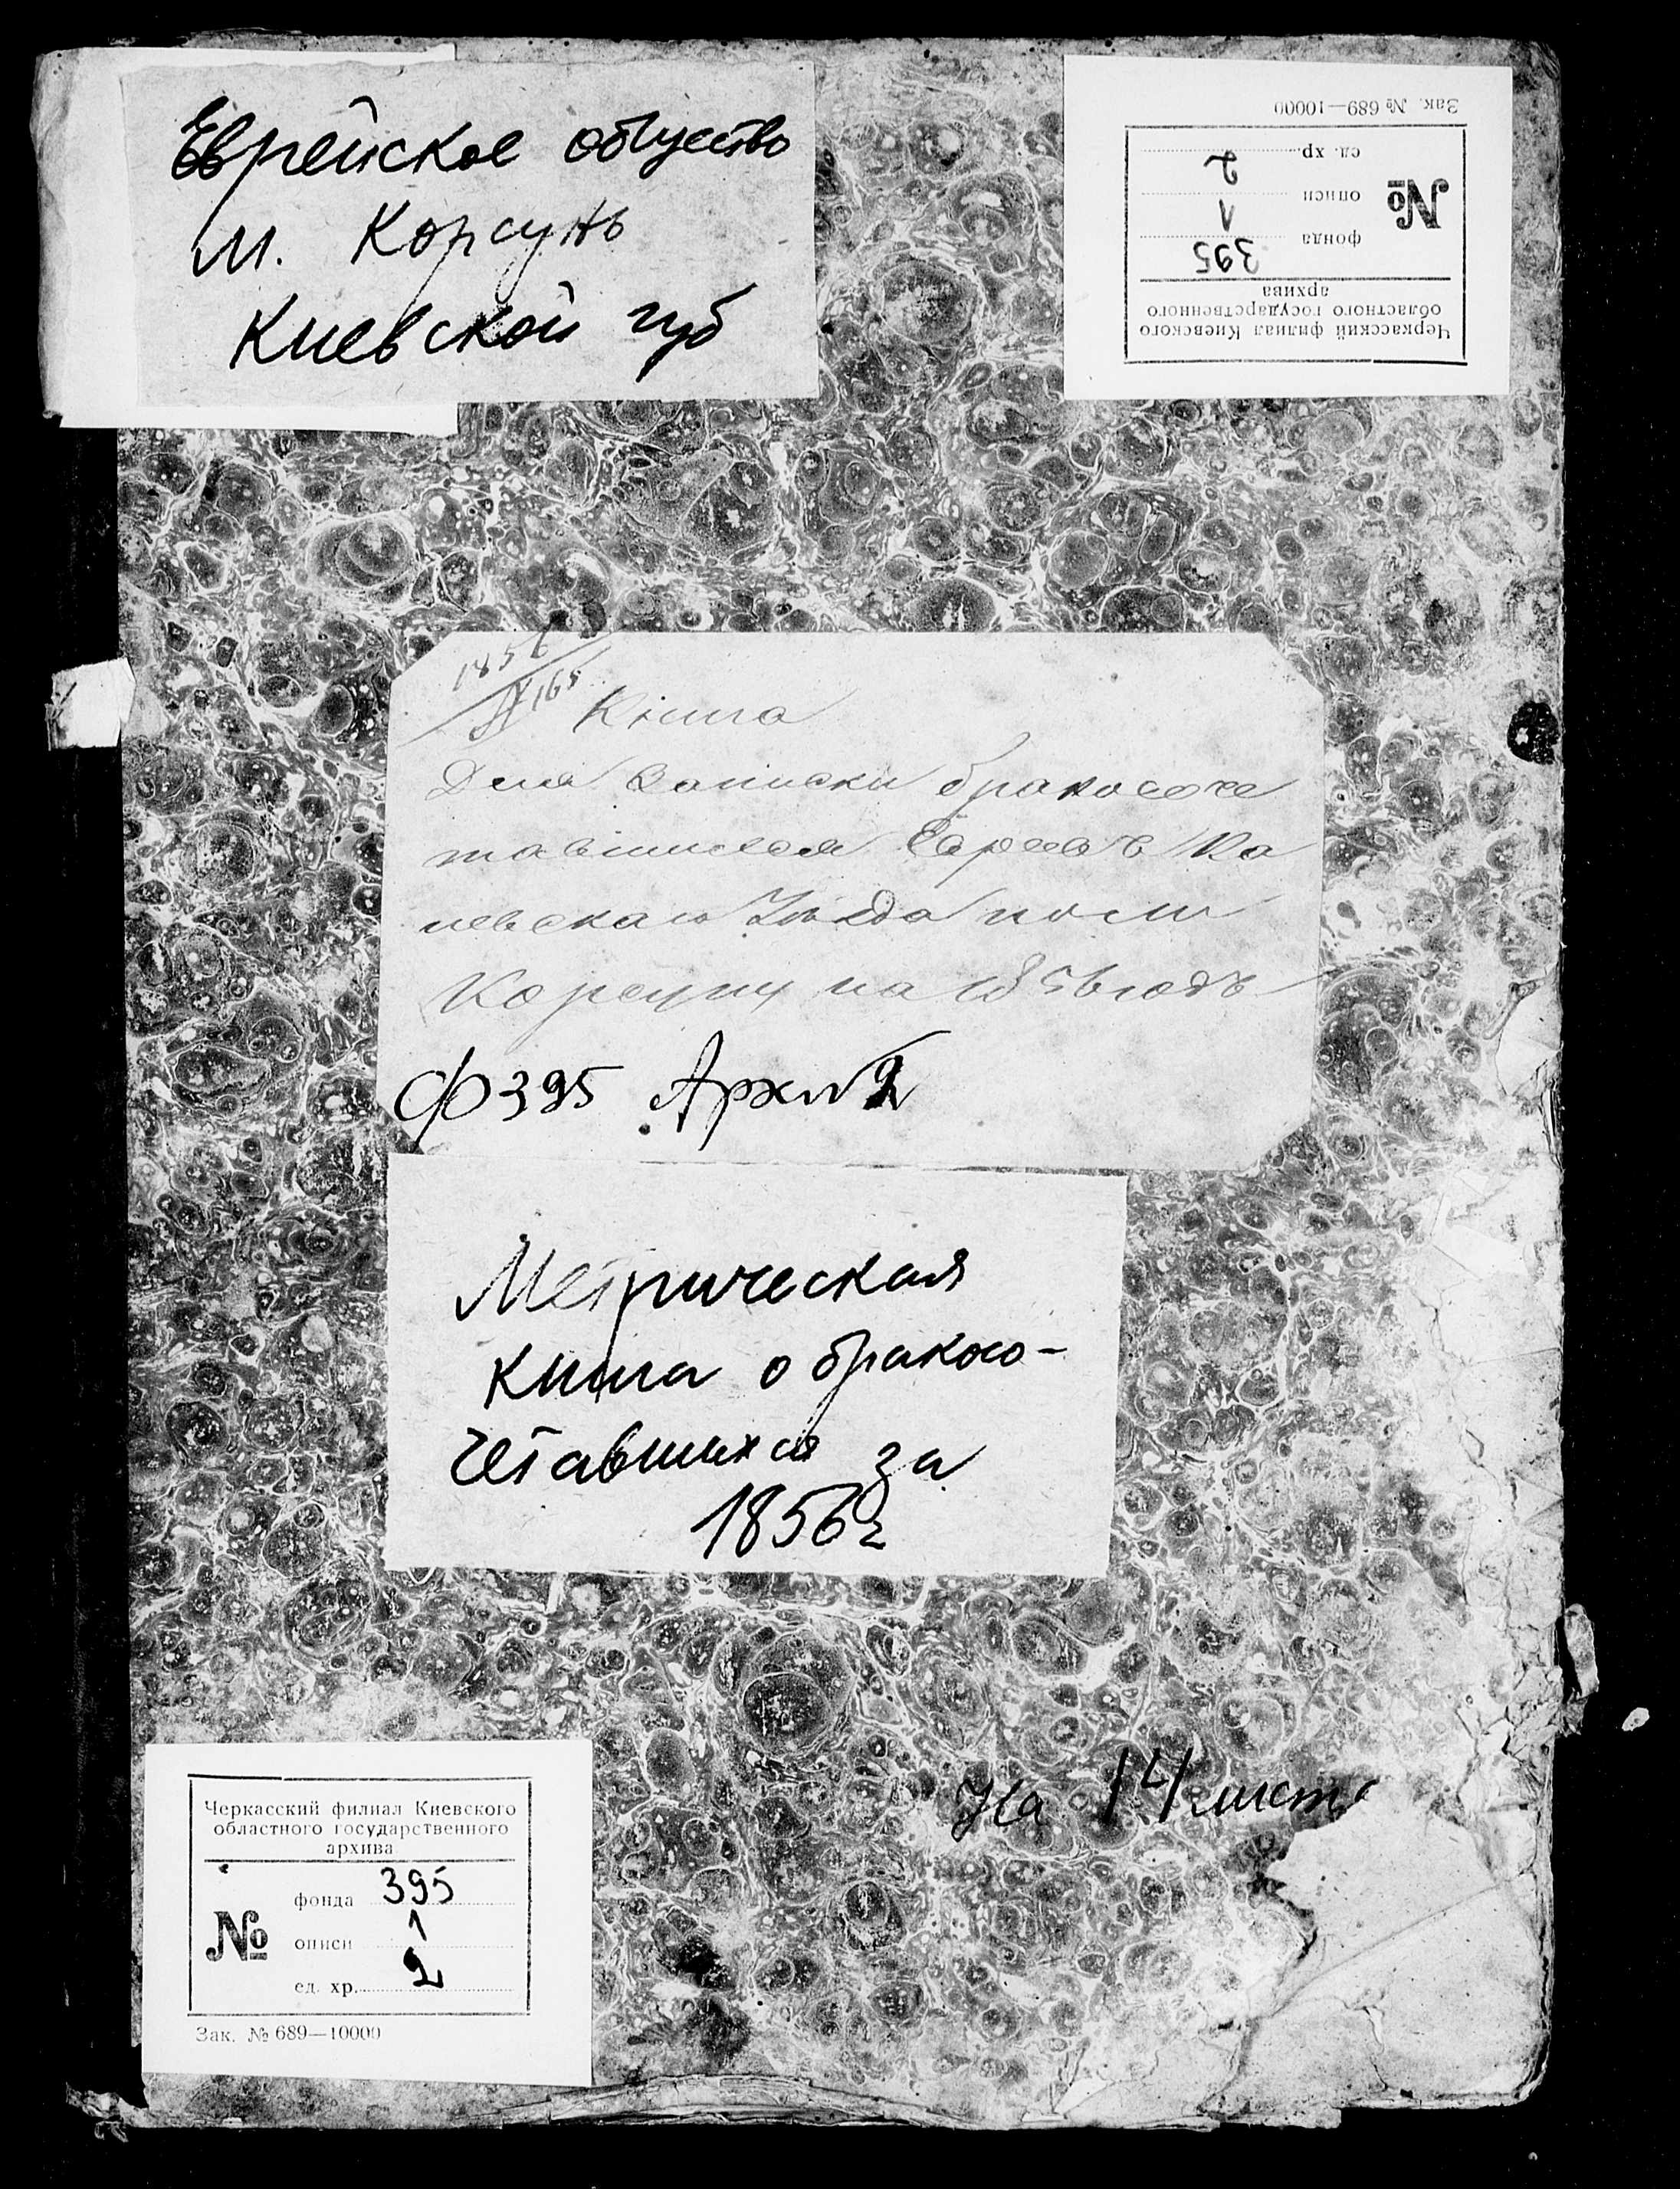 Еврейское общество
м. Корсунь
Киевской губ
Зак. № 689—10000
Черкасский филиал Киевского
областного государственного
архива
№
фонда 395
описи 1
ед. хр. 2
1856
№ 165
Книга
Для Записки бракосоче
тавшихся Евреевъ Ка
невскаго Уѣзда по м
Корсуну на 1856 годъ
Ф 395 Арх № 2
Метрическая
книга о бракосо-
четавшихся за
1856 г
На 14 лист
Черкасский филиал Киевского
областного государственного
архива
№
фонда 395
описи 1
ед. хр. 2
Зак. № 689—10000